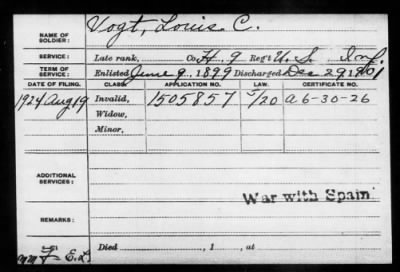 NAME OF SOLDIER: Vogt, Louis C.
SERVICE: Late rank, Co. H, 9 Reg't U. S. Inf.
TERM OF SERVICE: Enlisted June 9, 1899 Discharged Dec 29 1901
DATE OF FILING. CLASS. APPLICATION NO. LAW. CERTIFICATE NO.
1924 Aug 19 Invalid, 1505857 5/20 a6-30-26
Widow,
Minor,
ADDITIONAL SERVICES:
War with Spain
REMARKS:
Died , 1 , at